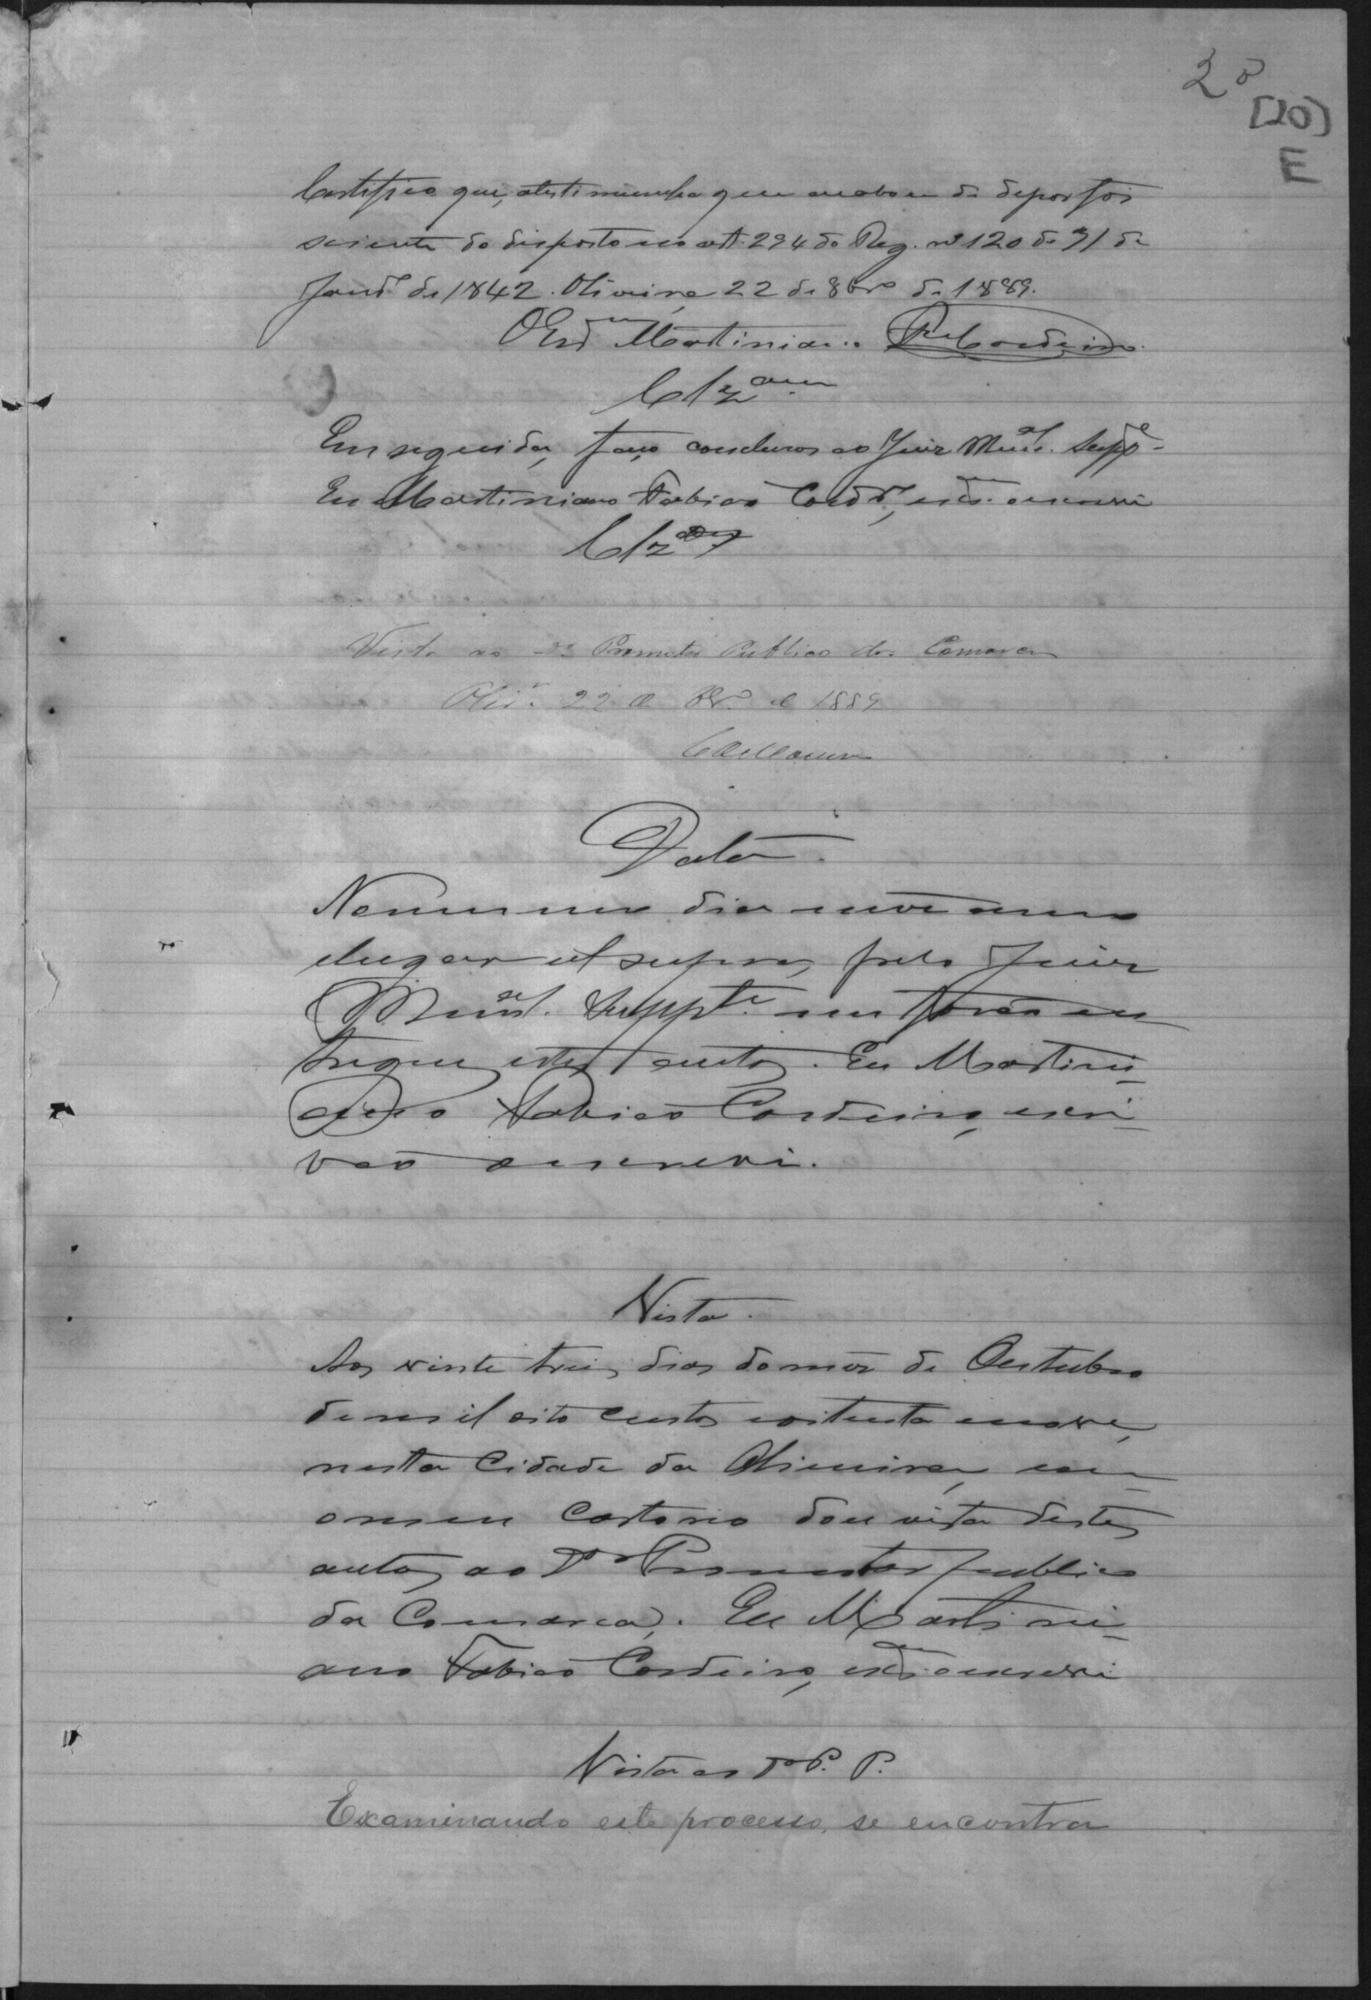 20
[20]
E
Certifico que, atestimunha que acabou de depor foi
sciente do disposto no art. 294 do Reg. nº 120 de 31 de
Janrº de 1842. Oliveira, 22 de 8brº de 1889.
O Escram Martiniano F. Cordeiro.
Clzam
Em seguida, faço conclusos ao Juiz Munal. Suppe.
Eu Martiniano Fabião Cordrº, escram. o escrevi
Clzos
Vista ao Dr Promotor Publico da Comarca
Olivrª. 22 de 8brº. de 1889
Data.
No mesmo dia mez anno
elugar ut supra, pelo Juiz
Munal. Supple. me forão en
tregues estes autos. Eu Martini-
ano Fabião Cordeiro, escri-
vão o escrevi.
Vista.
Aos vinte trez dias do mez de Outubro
de mil oito centos e oitenta e nove,
nesta Cidade da Oliveira, em
o meu Cartorio dou vista destes
autos ao Dr Promotor publico
da Comarca. Eu Martini-
ano Fabião Cordeiro, escram o escrevi
Vista ao Dr P. P.
Examinando este processo, se encontra